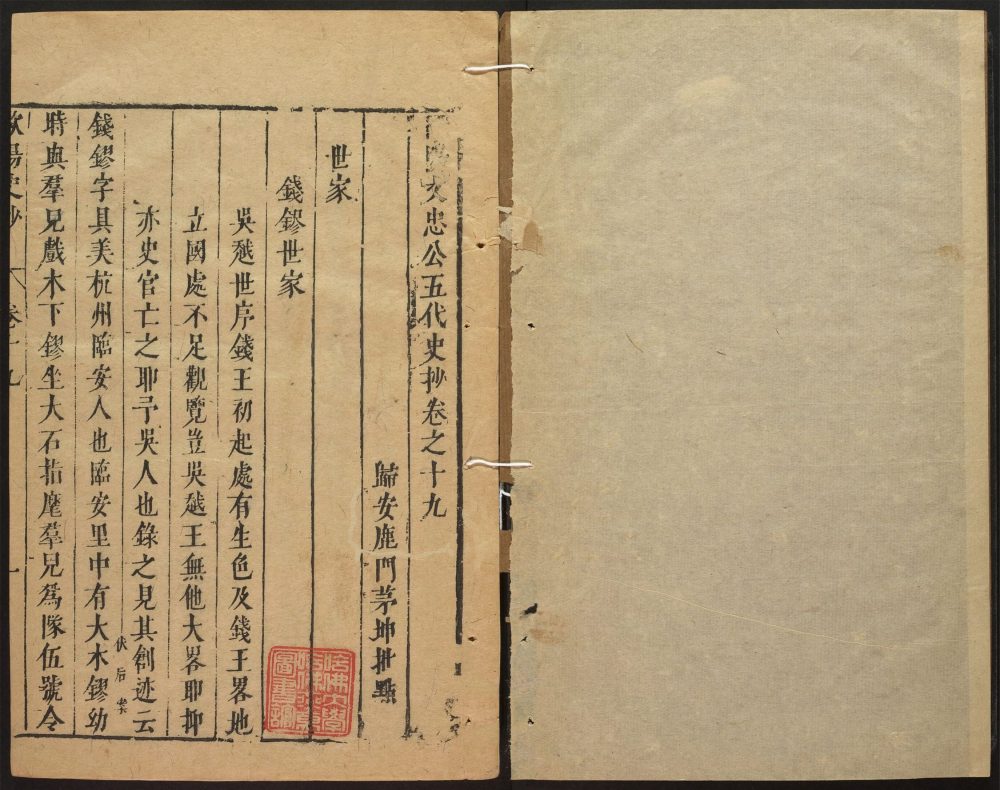 文忠公五代史抄卷之十九
歸安鹿門茅坤批點
世家
錢鏐世家
吳越世序錢王初起處有生色及錢王畧地
立國處不足觀覽豈吳越王無他大畧耶抑
亦史官亡之耶予吳人也錄之見其創迹云
錢鏐字具美杭州臨安人也臨安里中有大木鏐幼
伏后案
時與羣兒戲木下鏐坐大石指麾羣兒爲隊伍號令
史抄 卷十九 一
哈佛大學哈佛燕京圖書館